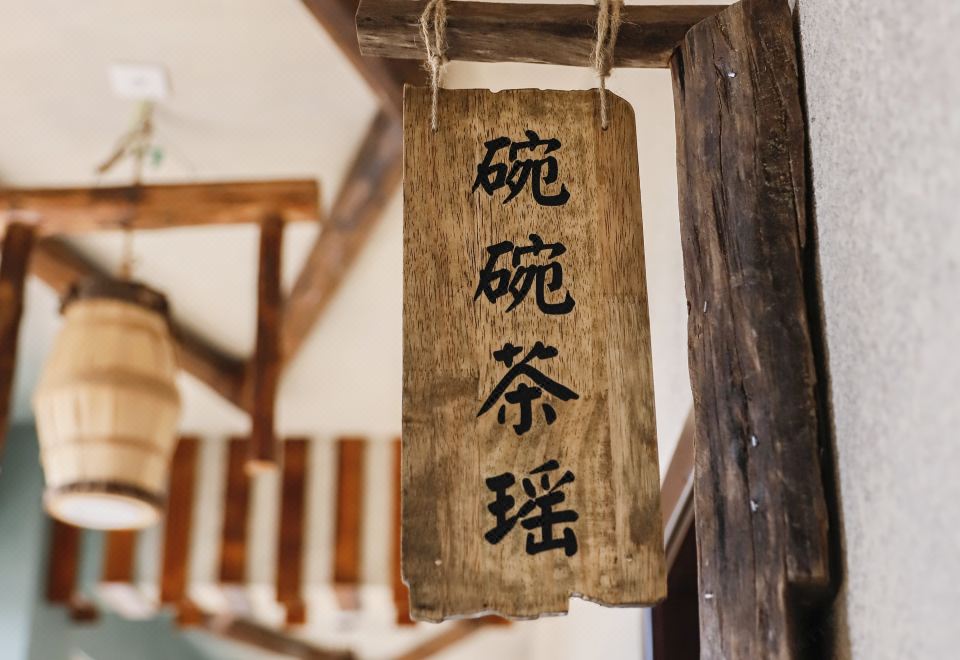 碗碗茶瑶